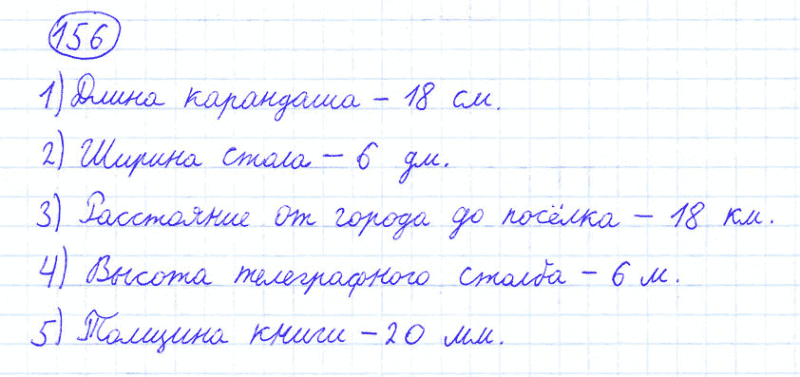 156
1) Длина карандаша – 18 см.
2) Ширина стола – 6 дм.
3) Расстояние от города до посёлка – 18 км.
4) Высота телеграфного столба – 6 м.
5) Толщина книги – 20 мм.